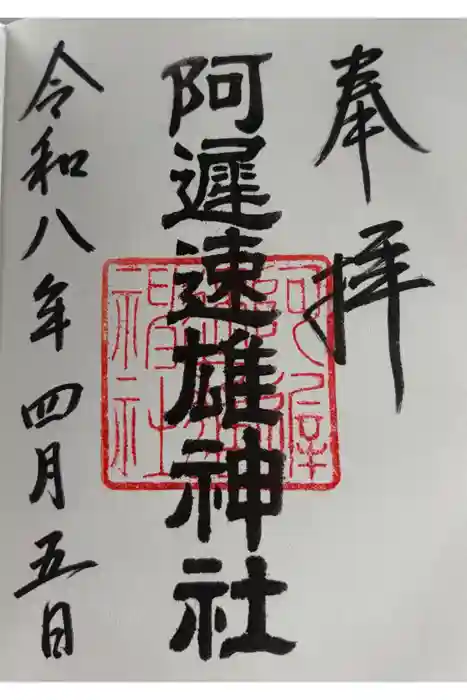 奉拝
阿遅速雄神社
令和八年四月五日